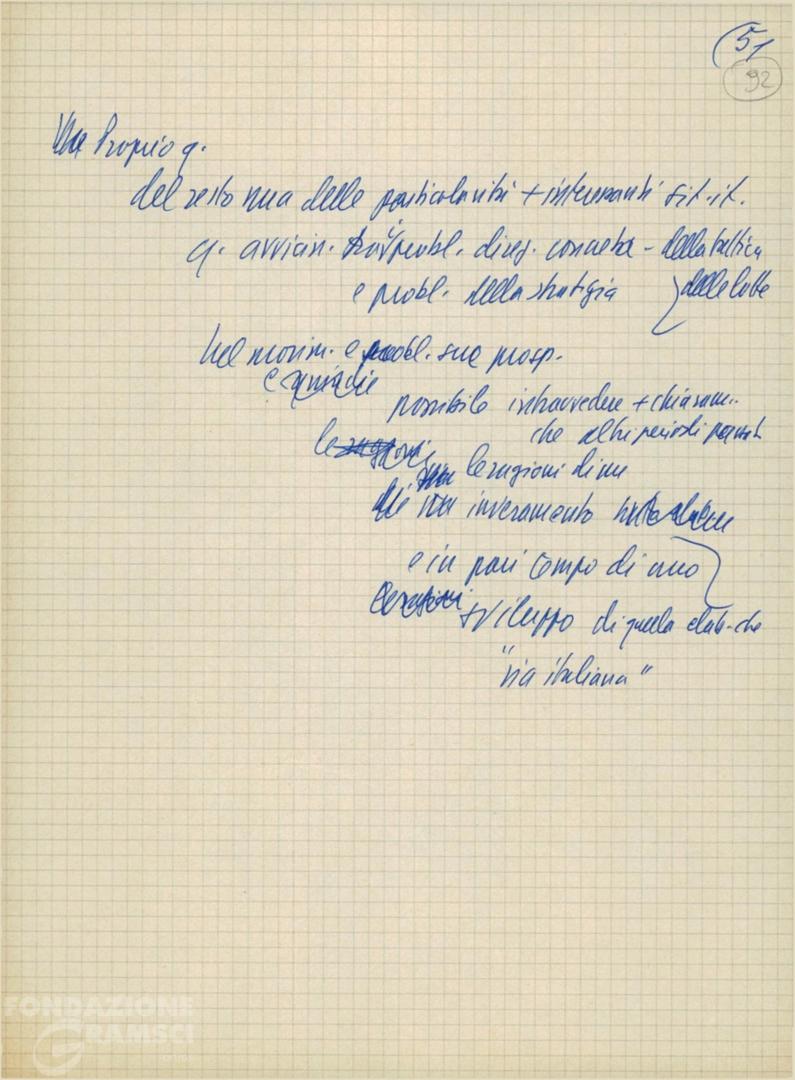 51
92
Ma Proprio q.
del resto una delle particolarità + interessanti sit. it.
q. avvicin. tra probl. direz. concreta - della tattica
e probl. della strategia delle lotte
nel movim. e probl. sue prosp.
e quindi è
possibile intravedere + chiaram.
che altri periodi
le ragioni
le ragioni di un
inveramento
e in pari tempo di uno
le ragioni sviluppo di quella elab. che
"via italiana"
FONDAZIONE
GRAMSCI